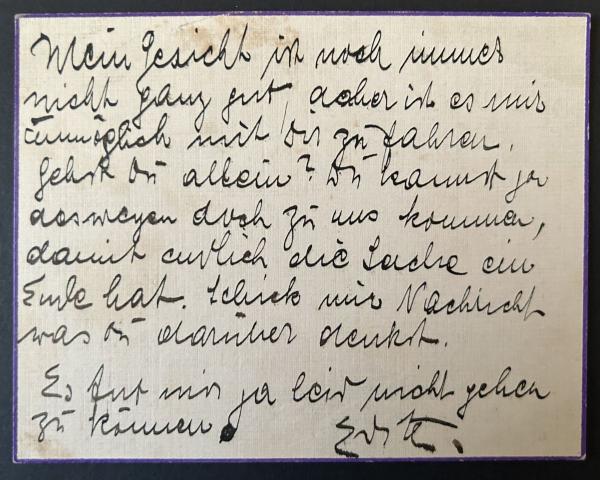 Mein Gesicht ist noch immer
nicht ganz gut, daher ist es mir
unmöglich mit Dir zu fahren.
Gehst Du allein? Du kannst ja
deswegen doch zu uns kommen,
damit endlich die Sache ein
Ende hat. Schick mir Nachricht
was Du darüber denkst.
Es tut mir ja leid nicht gehen
zu können.
Edith.